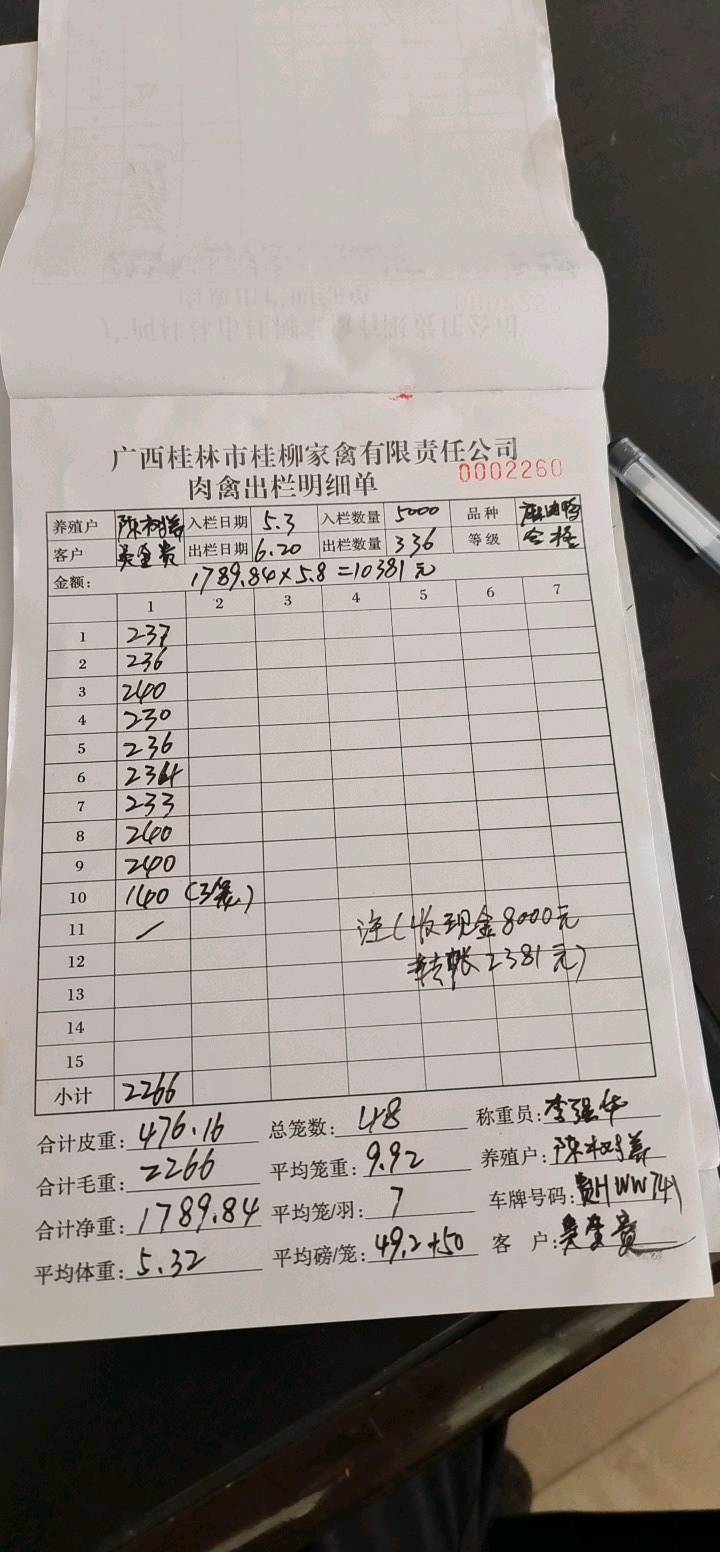 广西桂林市桂柳家禽有限责任公司
0002260
肉禽出栏明细单
养殖户 陈树养 入栏日期 5.3 入栏数量 5000 品种 麻油鸭
客户 出栏日期 6.20 出栏数量 336 等级 合格
金额: 1789.84×5.8=10381元
1 2 3 4 5 6 7
1 237
2 236
3 240
4 230
5 236
6 234
7 233
8 240
9 240
10 140 (3笼)
11 / 注(收现金8000元
12 转帐2381元)
13
14
15
小计 2266
合计皮重: 476.16 总笼数: 48 称重员: 李强华
合计毛重: 2266 平均笼重: 9.92 养殖户: 陈树养
合计净重: 1789.84 平均笼/羽: 7 车牌号码: 贵HWW741
平均体重: 5.32 平均磅/笼: 49.2+50 客 户: